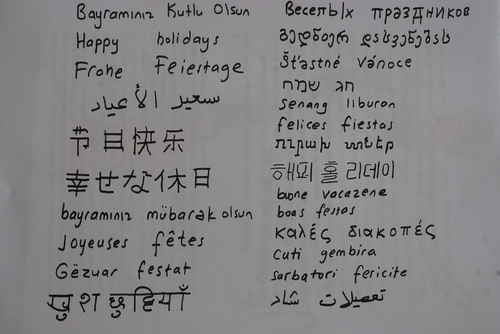 Bayramınız Kutlu Olsun
Happy holidays
Frohe Feiertage
سعيد الأعياد
节日快乐
幸せな休日
bayramınız mübarək olsun
Joyeuses fêtes
Gëzuar festat
खुश छुट्टियाँ
Веселых праздников
ბედნიერ დასვენებას
Šťastné Vánoce
חג שמח
Senang liburan
felices fiestas
Ուրախ տոներ
해피 홀리데이
buone vacazene
boas festas
καλές διακοπές
Cuti gembira
sarbatori fericite
تعطیلات شاد